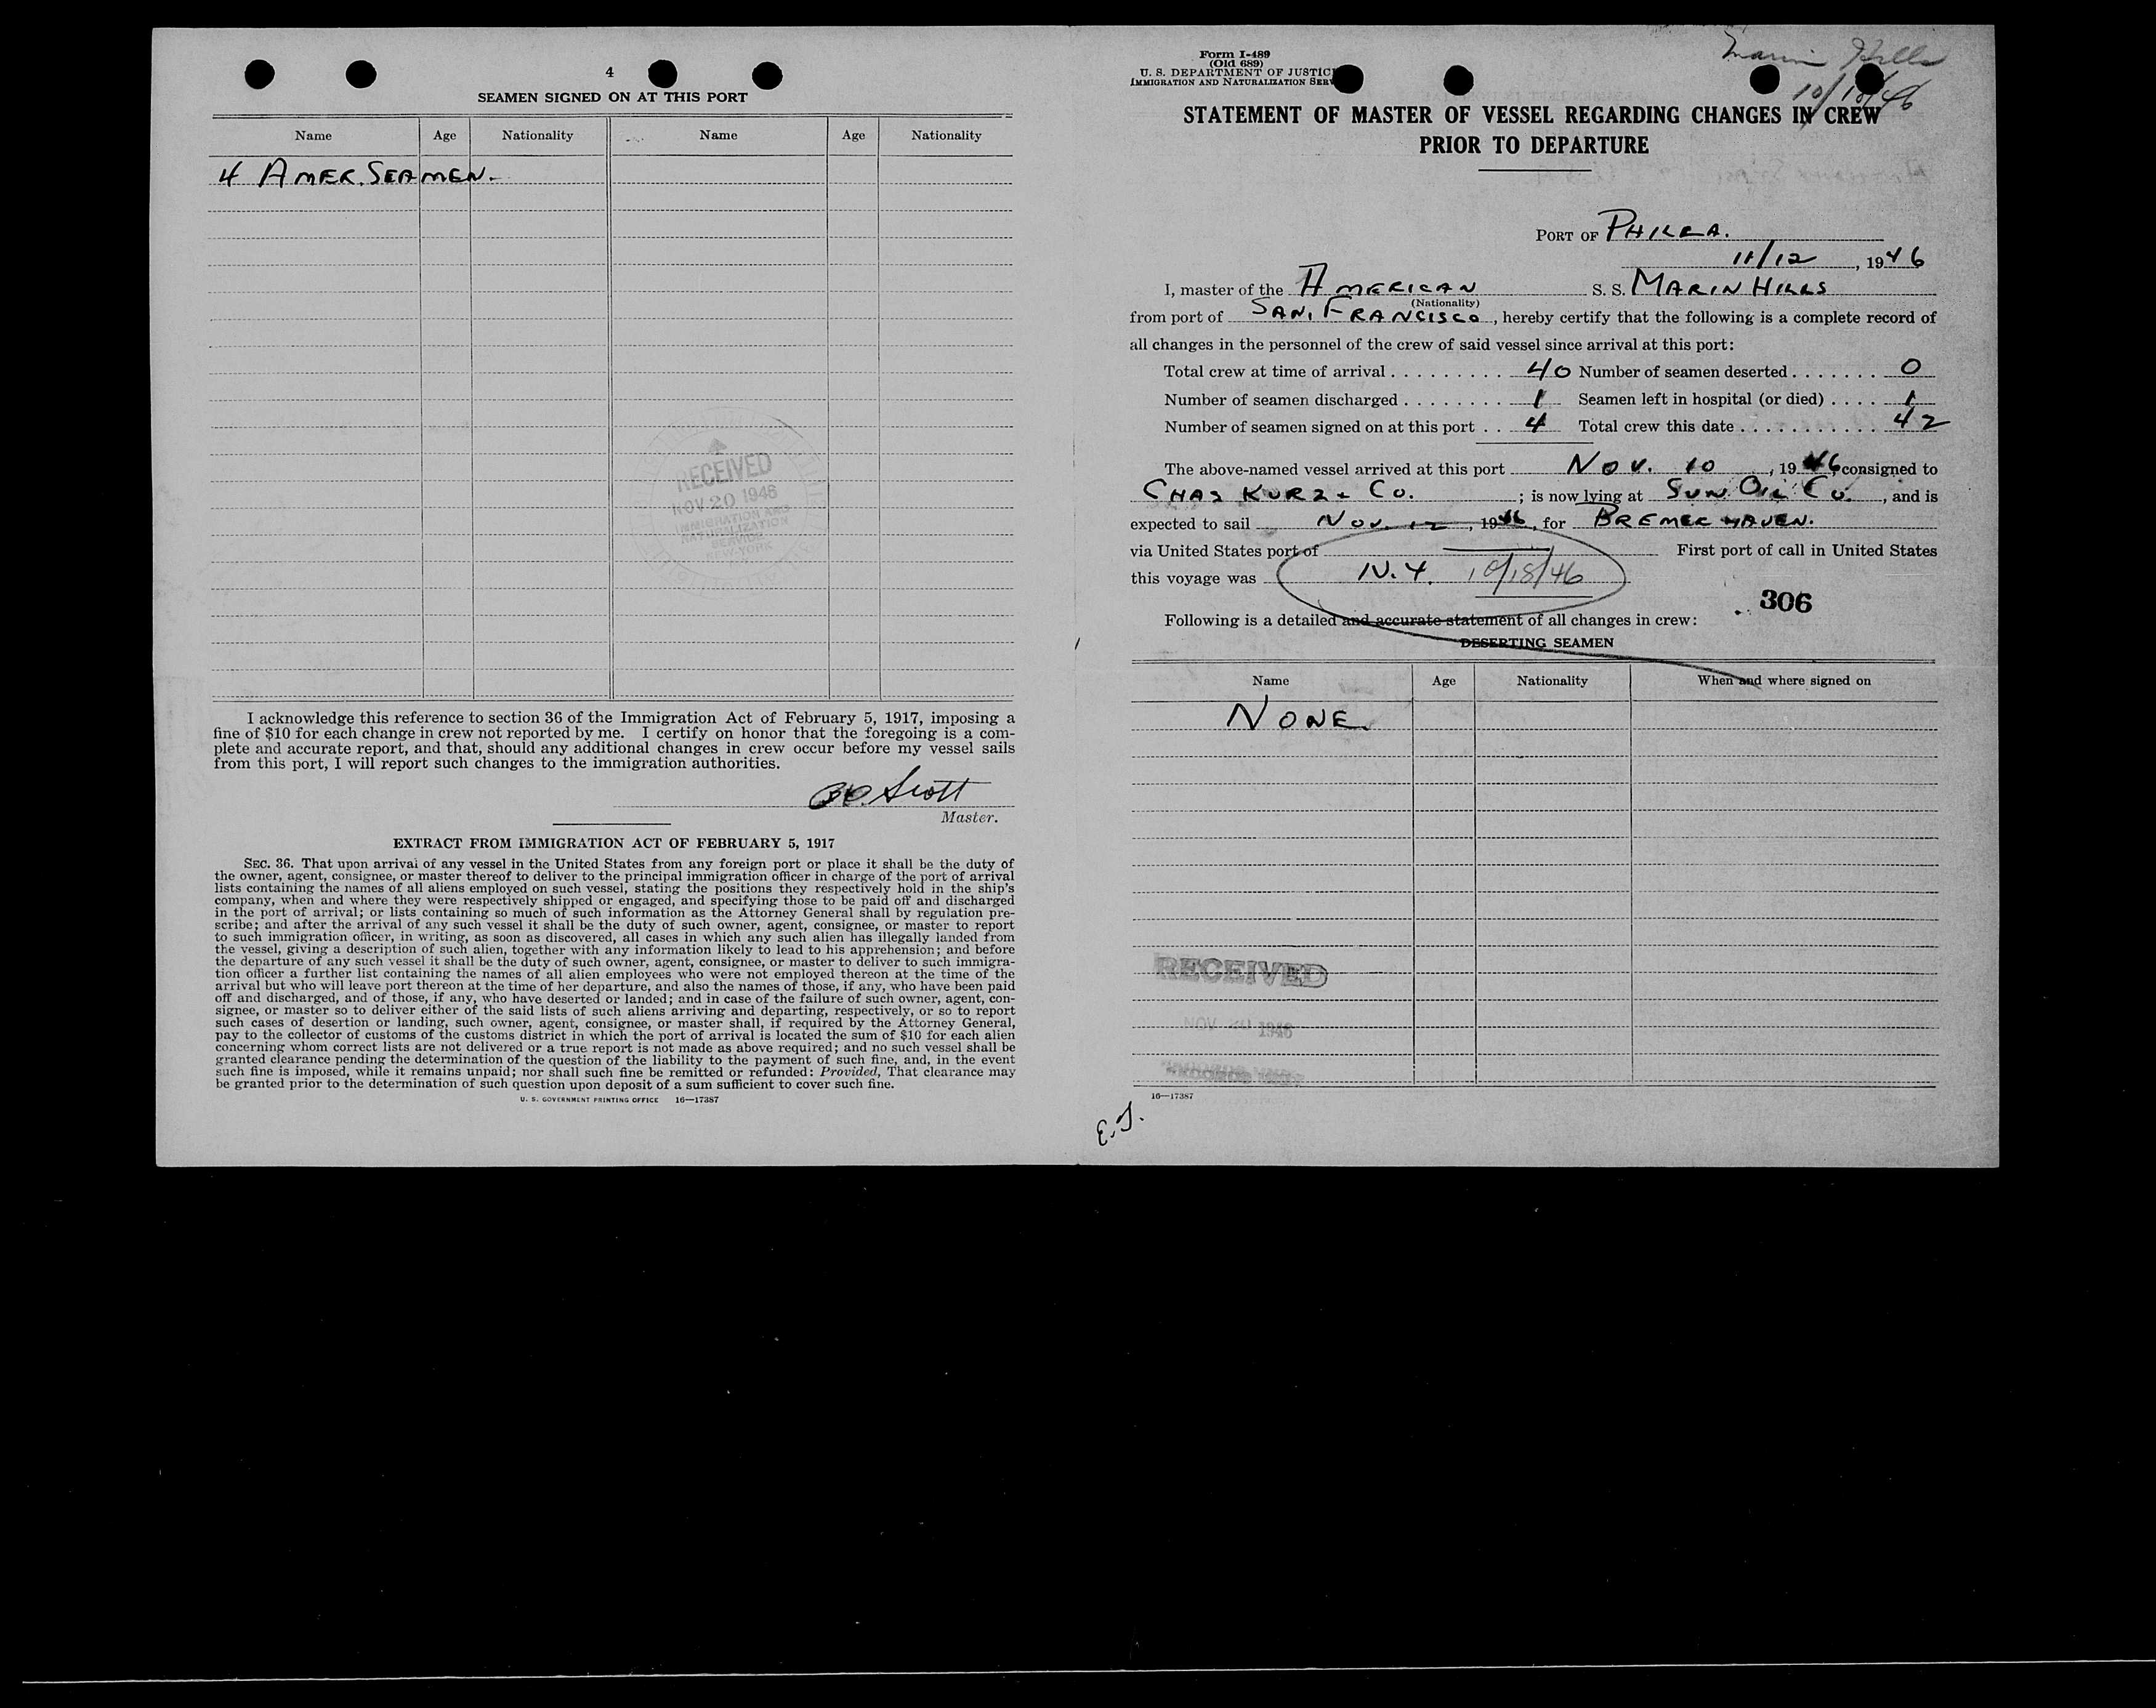 4
SEAMEN SIGNED ON AT THIS PORT
Name Age Nationality Name Age Nationality
4 AMER. SEAMEN.
RECEIVED
NOV 20 1946
IMMIGRATION AND
NATURALIZATION
SERVICE
NEW-YORK
I acknowledge this reference to section 36 of the Immigration Act of February 5, 1917, imposing a
fine of $10 for each change in crew not reported by me. I certify on honor that the foregoing is a com-
plete and accurate report, and that, should any additional changes in crew occur before my vessel sails
from this port, I will report such changes to the immigration authorities.
Scott
Master.
EXTRACT FROM IMMIGRATION ACT OF FEBRUARY 5, 1917
SEC. 36. That upon arrival of any vessel in the United States from any foreign port or place it shall be the duty of
the owner, agent, consignee, or master thereof to deliver to the principal immigration officer in charge of the port of arrival
lists containing the names of all aliens employed on such vessel, stating the positions they respectively hold in the ship's
company, when and where they were respectively shipped or engaged, and specifying those to be paid off and discharged
in the port of arrival; or lists containing so much of such information as the Attorney General shall by regulation pre-
scribe; and after the arrival of any such vessel it shall be the duty of such owner, agent, consignee, or master to report
to such immigration officer, in writing, as soon as discovered, all cases in which any such alien has illegally landed from
the vessel, giving a description of such alien, together with any information likely to lead to his apprehension; and before
the departure of any such vessel it shall be the duty of such owner, agent, consignee, or master to deliver to such immigra-
tion officer a further list containing the names of all alien employees who were not employed thereon at the time of the
arrival but who will leave port thereon at the time of her departure, and also the names of those, if any, who have been paid
off and discharged, and of those, if any, who have deserted or landed; and in case of the failure of such owner, agent, con-
signee, or master so to deliver either of the said lists of such aliens arriving and departing, respectively, or so to report
such cases of desertion or landing, such owner, agent, consignee, or master shall, if required by the Attorney General,
pay to the collector of customs of the customs district in which the port of arrival is located the sum of $10 for each alien
concerning whom correct lists are not delivered or a true report is not made as above required; and no such vessel shall be
granted clearance pending the determination of the question of the liability to the payment of such fine, and, in the event
such fine is imposed, while it remains unpaid; nor shall such fine be remitted or refunded: Provided, That clearance may
be granted prior to the determination of such question upon deposit of a sum sufficient to cover such fine.
U. S. GOVERNMENT PRINTING OFFICE 16—17387
Form I-489
(Old 689)
U. S. DEPARTMENT OF JUSTIC
IMMIGRATION AND NATURALIZATION SERV
Marin Hills
10/18/46
STATEMENT OF MASTER OF VESSEL REGARDING CHANGES IN CREW
PRIOR TO DEPARTURE
PORT OF PHILLA.
11/12, 1946
I, master of the AMERICAN S. S. MARIN HILLS
(Nationality)
from port of SAN. FRANCISCO, hereby certify that the following is a complete record of
all changes in the personnel of the crew of said vessel since arrival at this port:
Total crew at time of arrival 40 Number of seamen deserted 0
Number of seamen discharged 1 Seamen left in hospital (or died) 1
Number of seamen signed on at this port 4 Total crew this date 42
The above-named vessel arrived at this port NOV. 10, 1946 consigned to
CHAS KURZ & CO.; is now lying at SUN OIL CO., and is
expected to sail NOV. 12, 1946, for BREMERHAVEN.
via United States port of First port of call in United States
this voyage was N.Y. 10/18/46
306
Following is a detailed and accurate statement of all changes in crew:
DESERTING SEAMEN
Name Age Nationality When and where signed on
NONE.
RECEIVED
NOV 20 1946
16—17387
E.J.